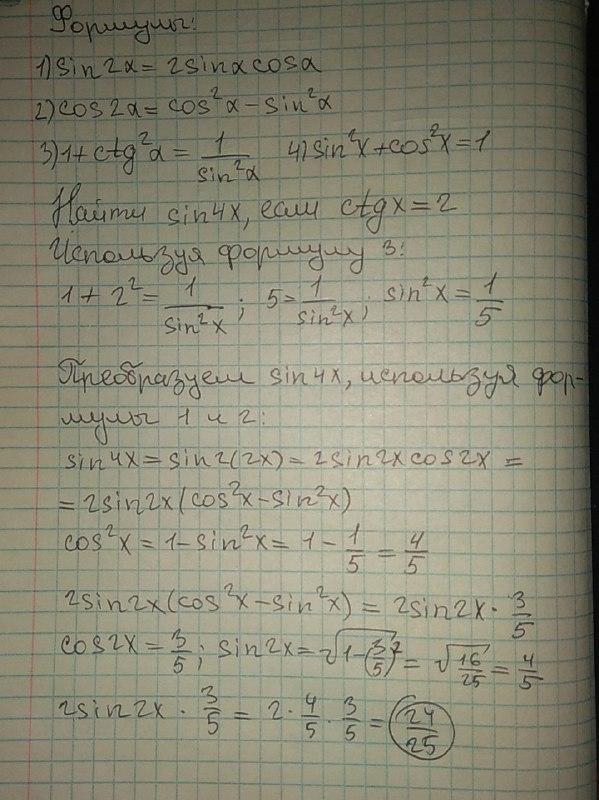 Формулы:
1) sin2α = 2sinαcosα
2) cos2α = cos²α - sin²α
3) 1 + ctg²α = 1/sin²α 4) sin²x + cos²x = 1
Найти sin4x, если ctgx = 2
Используя формулу 3:
1 + 2² = 1/sin²x; 5 = 1/sin²x; sin²x = 1/5
Преобразуем sin4x, используя фор-
мулы 1 и 2:
sin4x = sin2(2x) = 2sin2xcos2x =
= 2sin2x(cos²x - sin²x)
cos²x = 1 - sin²x = 1 - 1/5 = 4/5
2sin2x(cos²x - sin²x) = 2sin2x · 3/5
cos2x = 3/5; sin2x = √(1-(3/5)²) = √(16/25) = 4/5
2sin2x · 3/5 = 2 · 4/5 · 3/5 = 24/25